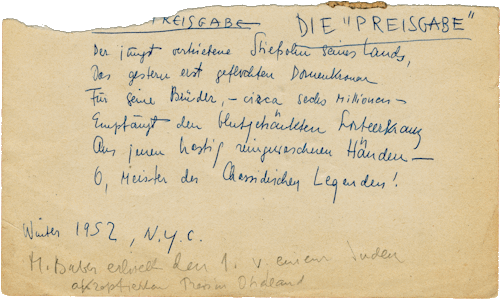 PREISGABE DIE "PREISGABE"
Der jüngst vertriebene Stiefsohn seines Lands,
Das gestern erst geflochten Dornenkronen
Für seine Brüder, – circa sechs Millionen –
Empfängt den blutgetränkten Lorbeerkranz
Aus jenen hastig reingewaschenen Händen –
O, Meister der Chassidischen Legenden!
Winter 1952, N.Y.C.
M. Buber erhielt den 1. v. einem Juden
akzeptierten Preis in